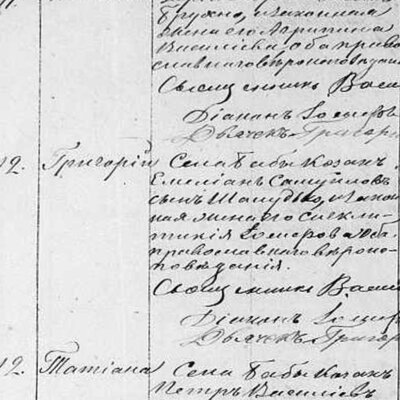 Грушко, и законная
жена его Агрипина
Василіева, оба право
славнаго вѣроисповѣдані
Священникъ Васи
Діаконъ
Дьячекъ Григор
12. Григорій Села Бабы Козакъ
Емеліанъ Самуйловъ
сынъ Шамудько, и закон
ная жена его Сиклι
тикія оба
православнаго вѣроис
повѣданія.
Священникъ Васи
Діаконъ
Дьячекъ Григор
12. Татіана Села Бабы Козакъ
Петръ Василіевъ